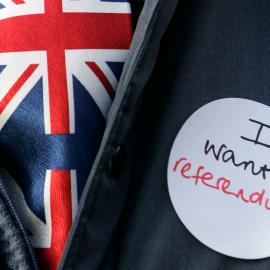 I
want
referendu